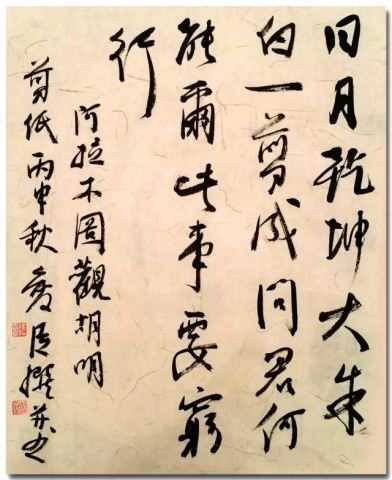 日月乾坤大朱
白一剪成問君何
能爾此事要窮
行
阿拉木圖觀胡明
剪紙丙申秋撰并书